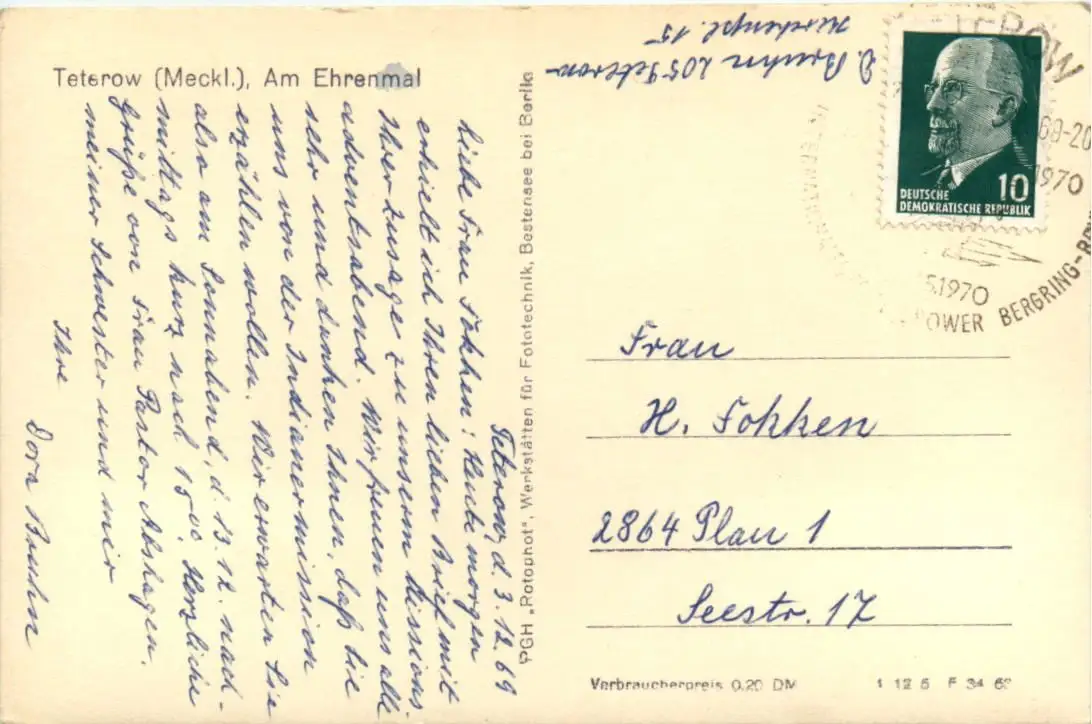 Teterow (Meckl.), Am Ehrenmal
Teterow, d. 3.12.69
Liebe Frau Fokken! Heute morgen
erhielt ich Ihren lieben Brief mit
Ihrer Zusage zu unserm Missions-
adventsabend. Wir freuen uns alle
sehr und danken Ihnen, daß Sie
uns von der Indianermission
erzählen wollen. Wir erwarten Sie
also am Sonnabend, d. 13.12. nach-
mittags kurz nach 15.00. Herzliche
Grüße von Frau Pastor Abshagen,
meiner Schwester und mir
Ihre
Dora Bruhn
PGH „Rotophot“, Werkstätten für Fototechnik, Bestensee bei Berlin
D. Bruhn 205 Teterow
15
DEUTSCHE
DEMOKRATISCHE REPUBLIK
10
TEROW
69-20
1970
5.1970
OWER BERGRING-R
Frau
H. Fokken
2864 Plau 1
Seestr. 17
Verbraucherpreis 0,20 DM
1 12 5 F 34 69